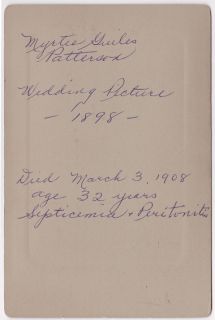 Myrtie Guiles
Patterson
Wedding Picture
- 1898 -
Died March 3, 1908
age 32 years
Septicemia + Peritonitis